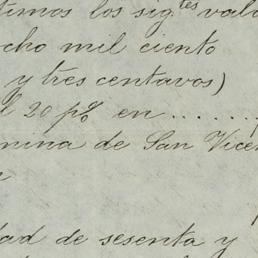 timos los sig.tes valo
ocho mil ciento
y tres centavos)
l 20 p% en . . . . . .
nina de San Vice
dad de sesenta y